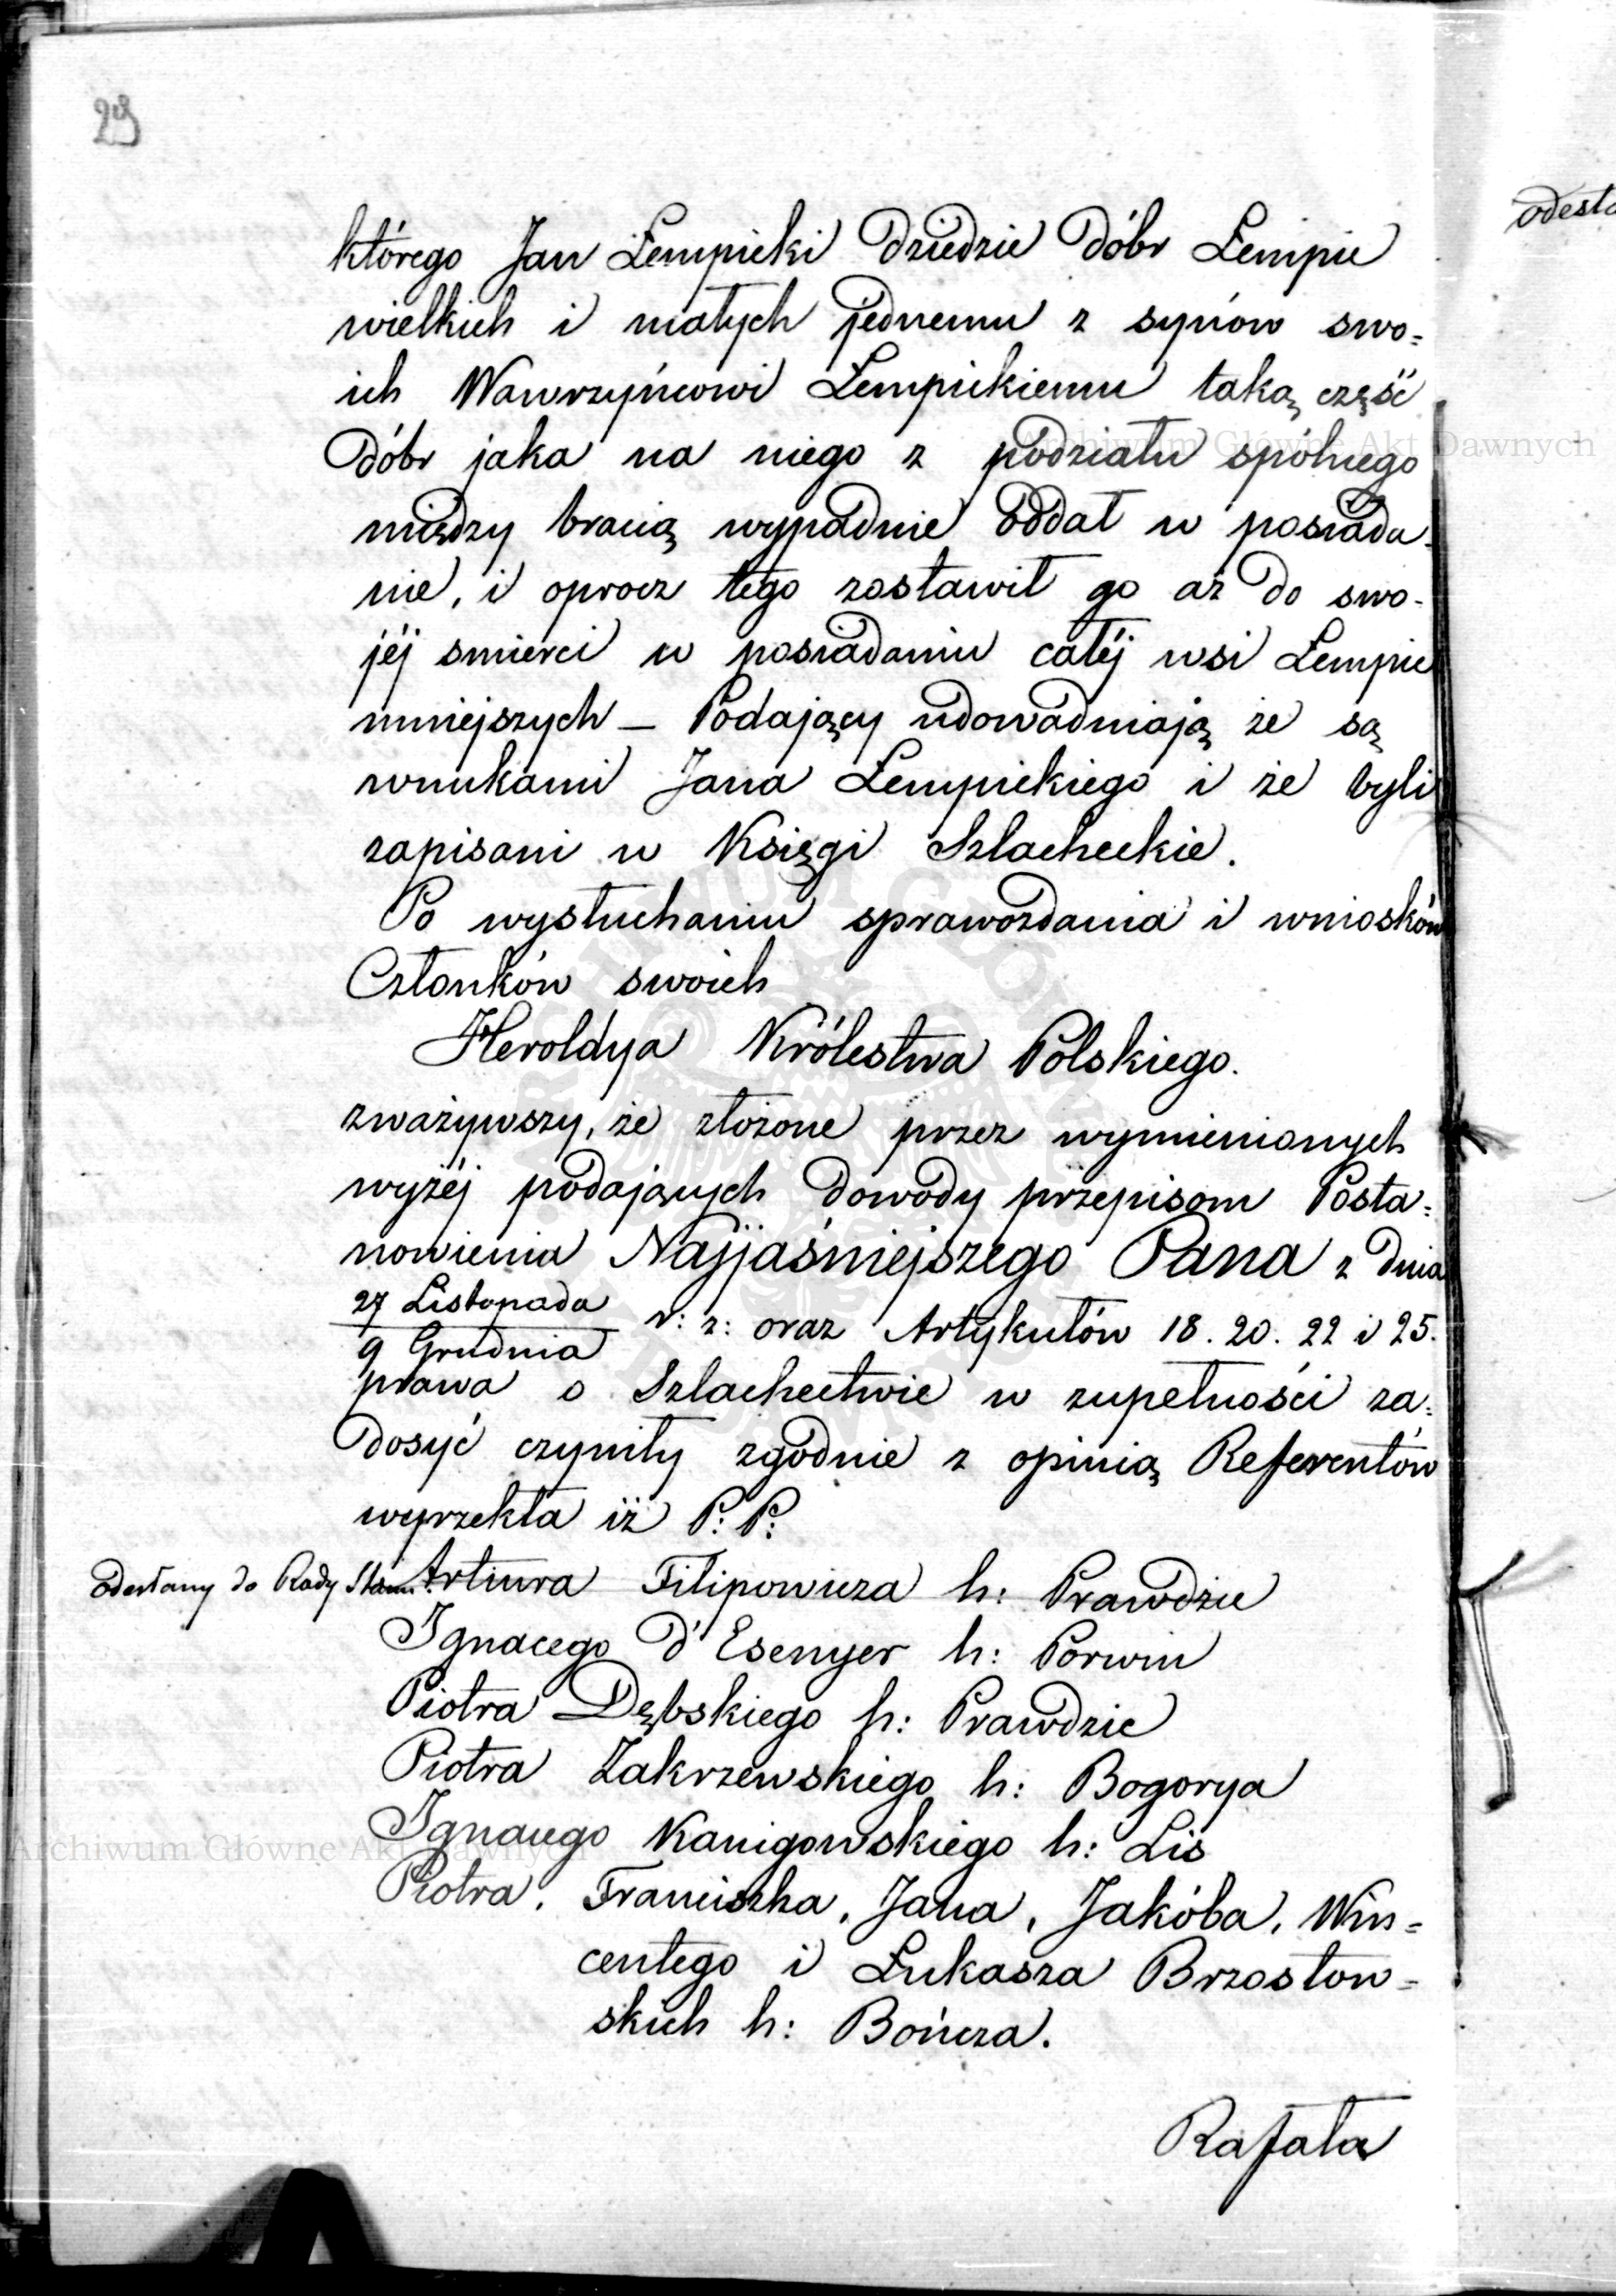 29
którego Jan Łempicki Dziedzic Dóbr Łempic
wielkich i małych jednemu z synów swo=
ich Wawrzyńcowi Łempickiemu taką część
Dóbr jaka na niego z podziału spólnego
między bracią wypadnie oddał w posiada-
nie, i oprocz tego zostawił go aż do swo-
jéj smierci w posiadaniu całéj wsi Łempic
mniejszych — Podający udowadniają że są
wnukami Jana Łempickiego i że byli
zapisani w Księgi Szlacheckie.
Po wysłuchaniu sprawozdania i wniosków
Członków swoich
Heroldya Królestwa Polskiego.
zważywszy, że złożone przez wymienionych
wyżéj podających dowody przepisom Posta=
nowienia Najjaśniejszego Pana z dnia
27 Listopada
9 Grudnia
r: z: oraz Artykułów 18. 20. 22 i 25.
prawa o Szlachectwie w zupełności za=
dosyć czyniły zgodnie z opinią Referentów
wyrzekła iż P: P:
Odesłany do Rady Stanu. Artura Filipowicza h: Prawdzic
Ignacego d'Esenyer h: Porwin
Piotra Dębskiego h: Prawdzic
Piotra Zakrzewskiego h: Bogorya
Ignacego Kanigowskiego h: Lis
Piotra, Franciszka, Jana, Jakóba, Win=
centego i Łukasza Brzostow=
skich h: Bończa.
Rafała
Archiwum Główne Akt Dawnych
Archiwum Główne Akt Dawnych